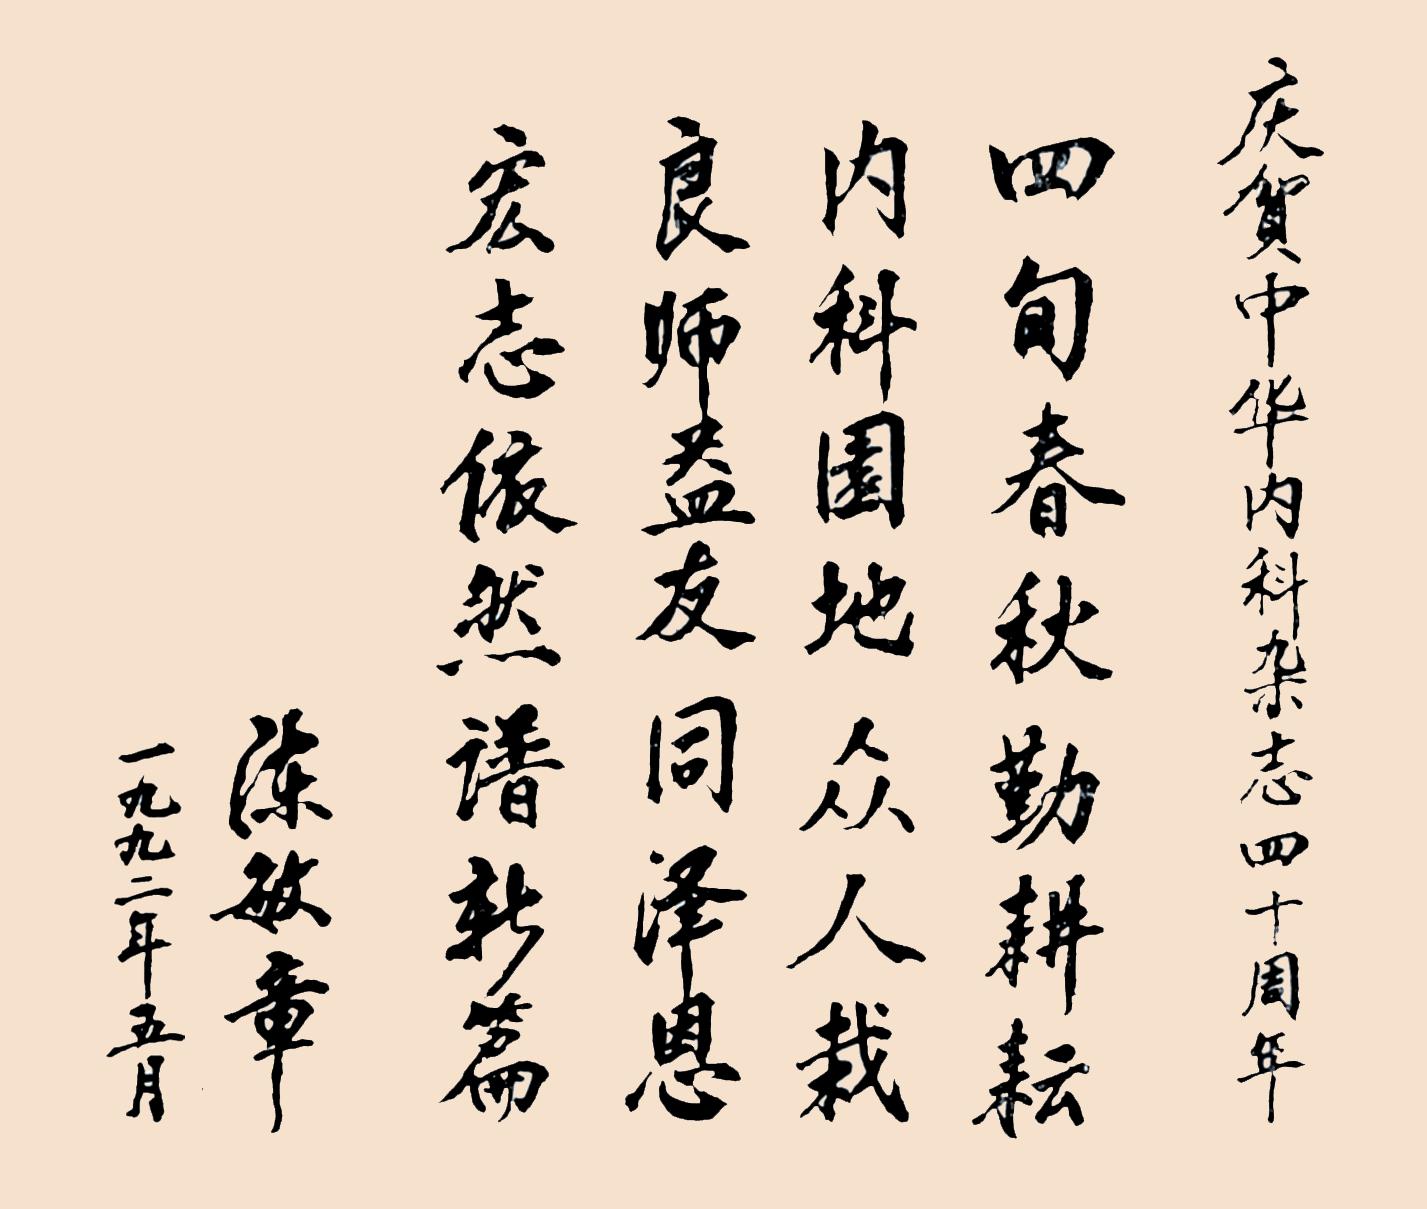 庆贺中华内科杂志四十周年
四旬春秋勤耕耘
内科园地众人栽
良师益友同泽恩
宏志依然谱新篇
陈敏章
一九九二年五月